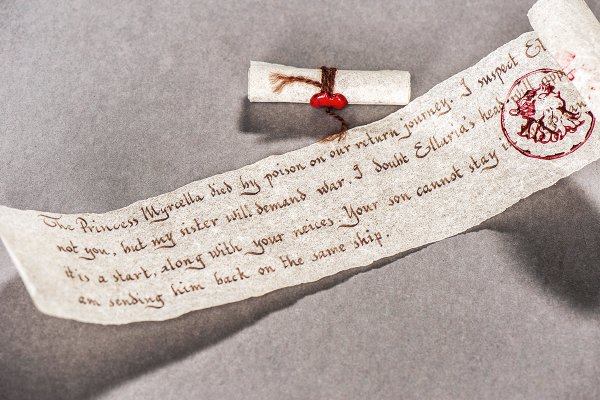 The Princess Myrcella died by poison on our return journey. I suspect El
not you, but my sister will demand war. I doubt Ellaria's head will
it is a start, along with your neices. Your son cannot stay i
am sending him back on the same ship.